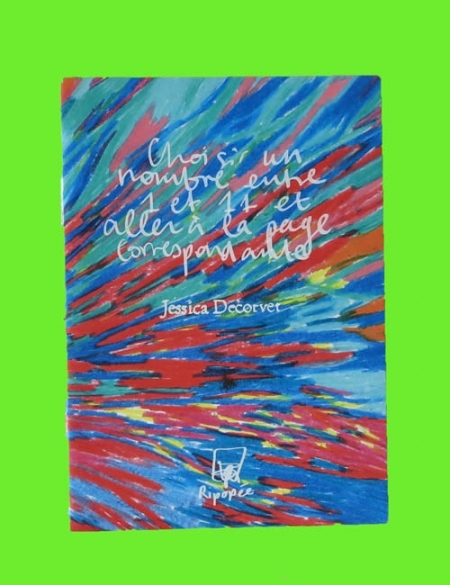 Choisir un
nombre entre
1 et 11 et
aller à la page
correspondante
Jessica Decorvet
Ripopée